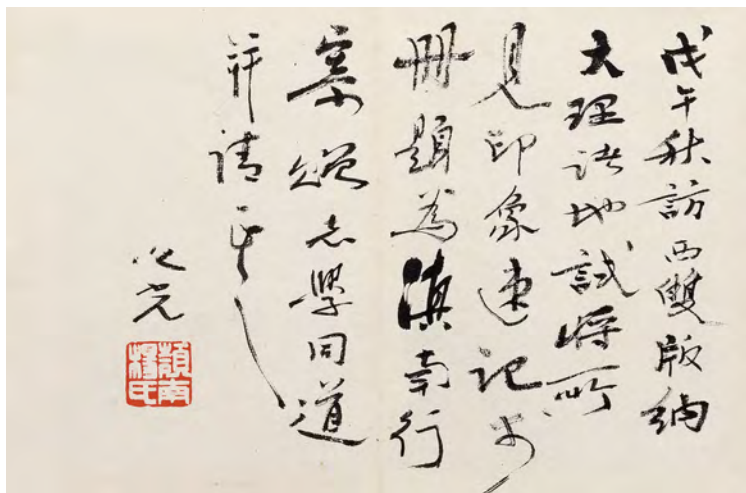 戊午秋訪西雙版納
大理諸地試將所
見印象速記
冊題為滇南行
贈志學同道
并請正之
之光
嶺南
楊氏